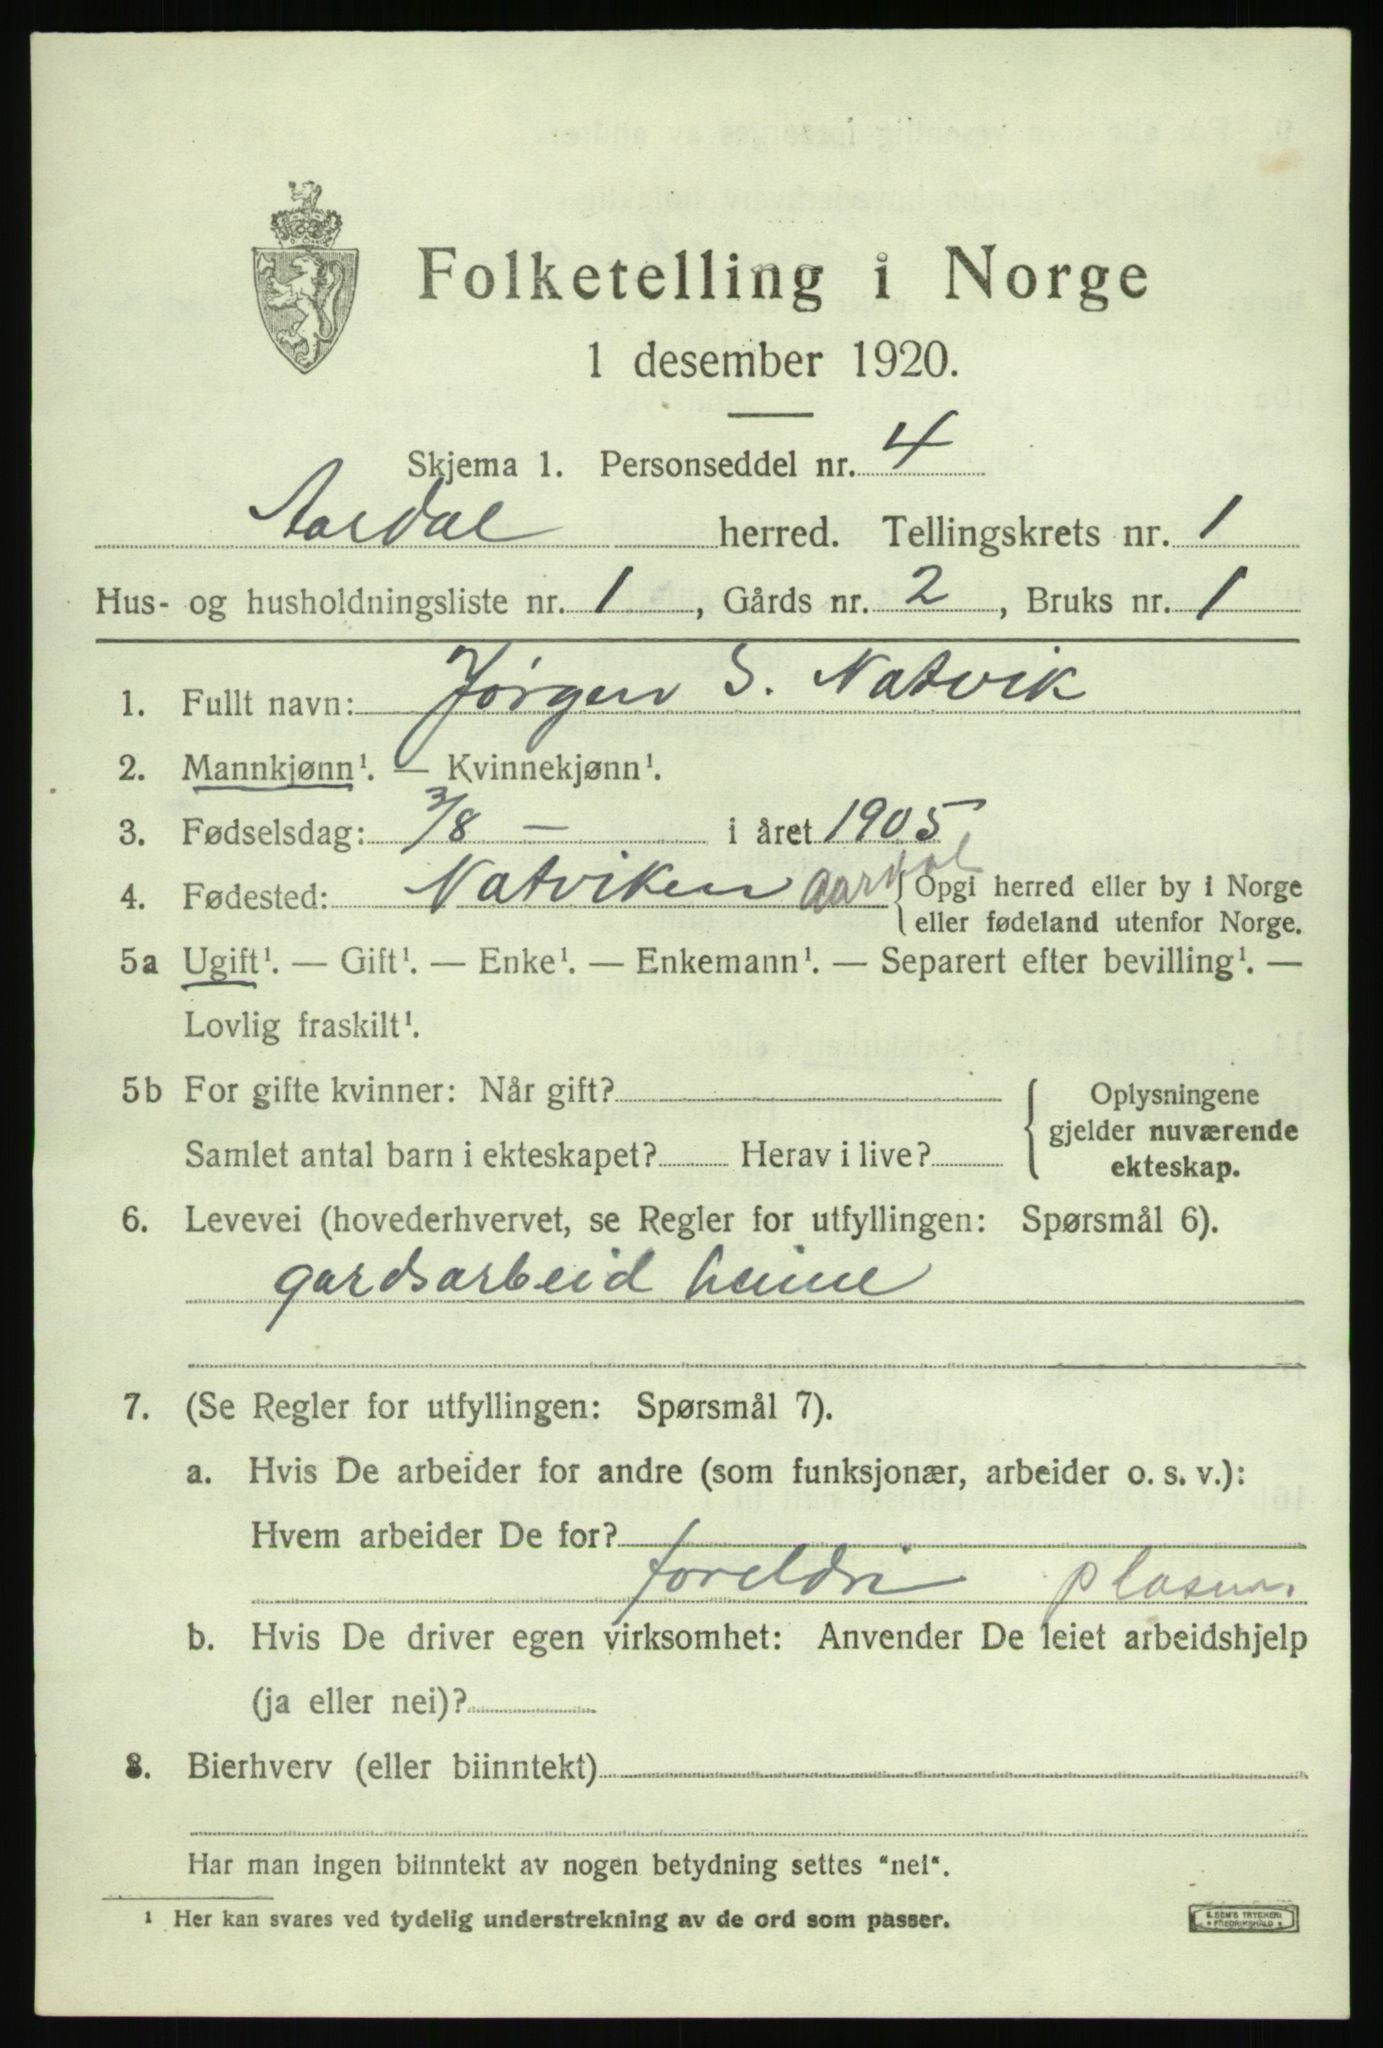 Folketelling i Norge
1 desember 1920.
Skjema 1. Personseddel nr. 4
Aardal herred. Tellingskrets nr. 1
Hus- og husholdningsliste nr. 1, Gårds nr. 2, Bruks nr. 1
1. Fullt navn: Jørgen S. Natvik
2. Mannkjønn¹. — Kvinnekjønn¹.
3. Fødselsdag: 3/8 — i året 1905
4. Fødested: Natviken Aardal { Opgi herred eller by i Norge
eller fødeland utenfor Norge.
5a Ugift¹. — Gift¹. — Enke¹. — Enkemann¹. — Separert efter bevilling¹. —
Lovlig fraskilt¹.
5b For gifte kvinner: Når gift? { Oplysningene
gjelder nuværende
Samlet antal barn i ekteskapet? Herav i live? ekteskap.
6. Levevei (hovederhvervet, se Regler for utfyllingen: Spørsmål 6).
gardsarbeid heime
7. (Se Regler for utfyllingen: Spørsmål 7).
a. Hvis De arbeider for andre (som funksjonær, arbeider o. s. v.):
Hvem arbeider De for?
foreldri
b. Hvis De driver egen virksomhet: Anvender De leiet arbeidshjelp
(ja eller nei)?
8. Bierhverv (eller biinntekt)
Har man ingen biinntekt av nogen betydning settes "nei".
¹ Her kan svares ved tydelig understrekning av de ord som passer.
E. SEM'S TRYKKERI
* FREDRIKSHALD *